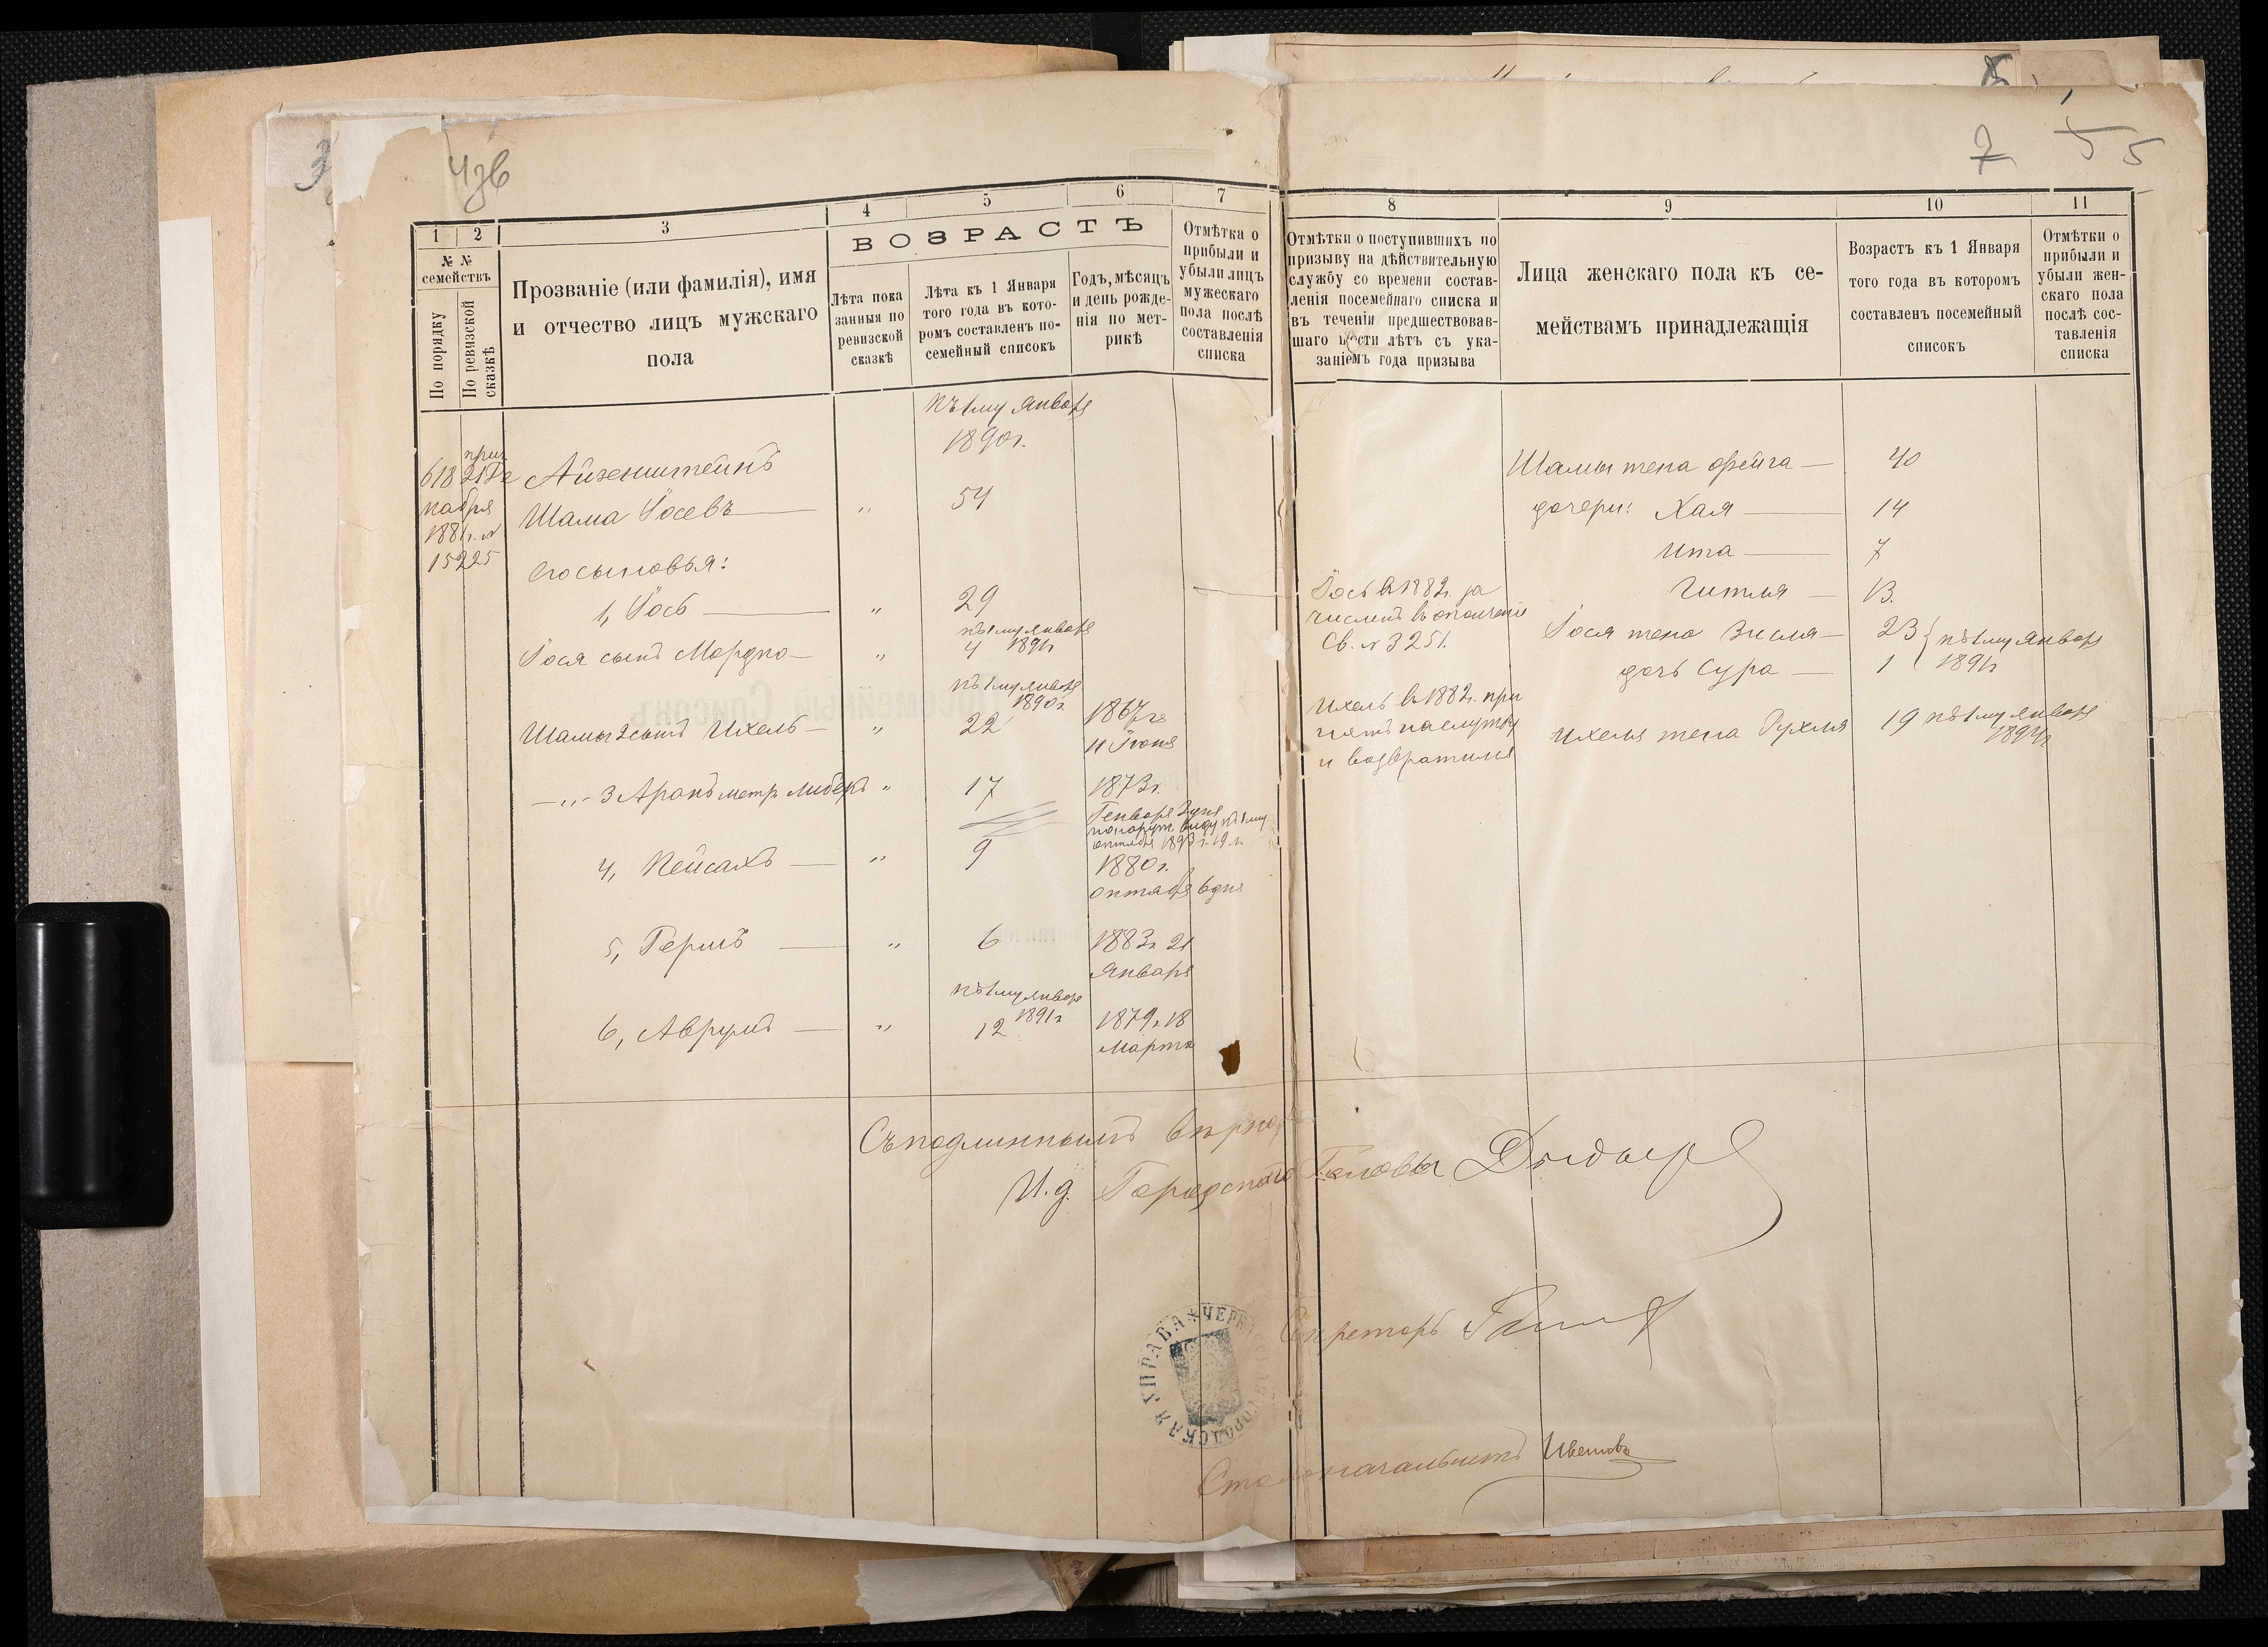 7 5 5
1 2 3 4 5 6 7
№ №
семействъ
По порядку
По ревизской
сказкѣ
Прозваніе (или фамилія), имя
и отчество лицъ мужскаго
пола
ВОЗРАСТЪ
Лѣта пока
занныя по
ревизской
сказкѣ
Лѣта къ 1 Января
того года въ кото-
ромъ составленъ по-
семейный списокъ
Годъ, мѣсяцъ
и день рожде-
нія по мет-
рикѣ
Отмѣтка о
прибыли и
убыли лицъ
мужескаго
пола послѣ
составленія
списка
къ 1му Января
1890г.
618
Айзенштейнъ
ноября
Шама Іосевъ — „ 54
1881г. №
15225
Его сыновья:
1, Іось — „ 29
къ 1му Января
Іося сынъ Мордко — „ 4 1891г
къ 1му Января
1890г.
Шамы 2 сынъ Ихель — „ 22 1867г.
11 Іюня
—„— 3 Аронъ метр. Либеръ „ 17 1873г.
Генваря 2 дня
4, Пейсахъ — „ 9 1880г.
октября 6 дня
5, Гершъ — „ 6 1883г 21
Января
къ 1му Января
1891г
6, Аврумъ — „ 12 1879г. 18
Марта
8 9 10 11
Отмѣтки о поступившихъ по
призыву на дѣйствительную
службу со времени состав-
ленія посемейнаго списка и
въ теченіи предшествовав-
шаго шести лѣтъ съ ука-
заніемъ года призыва
Лица женскаго пола къ се-
мействамъ принадлежащія
Возрастъ къ 1 Января
того года въ которомъ
составленъ посемейный
списокъ
Отмѣтки о
прибыли и
убыли жен-
скаго пола
послѣ сос-
тавленія
списка
Шамы жена Фейга — 40
дочери: Хая — 14
Ита — 7
Гитля — 13.
Іось в 1882г. за
численъ в ополченіе
Св. № 3251.
Іося жена Зисля — 23 { къ 1му Января
дочь Сура — 1 1891г
Ихель в 1882г. при
нятъ на службу
и возвратился
Ихеля жена Рухля 19 къ 1му Января
Съ подлиннымъ вѣрно:
И.д. Городского Головы
Секретарь
ЧЕРК ГОРОДСКАЯ УПРАВА
Столоначальникъ